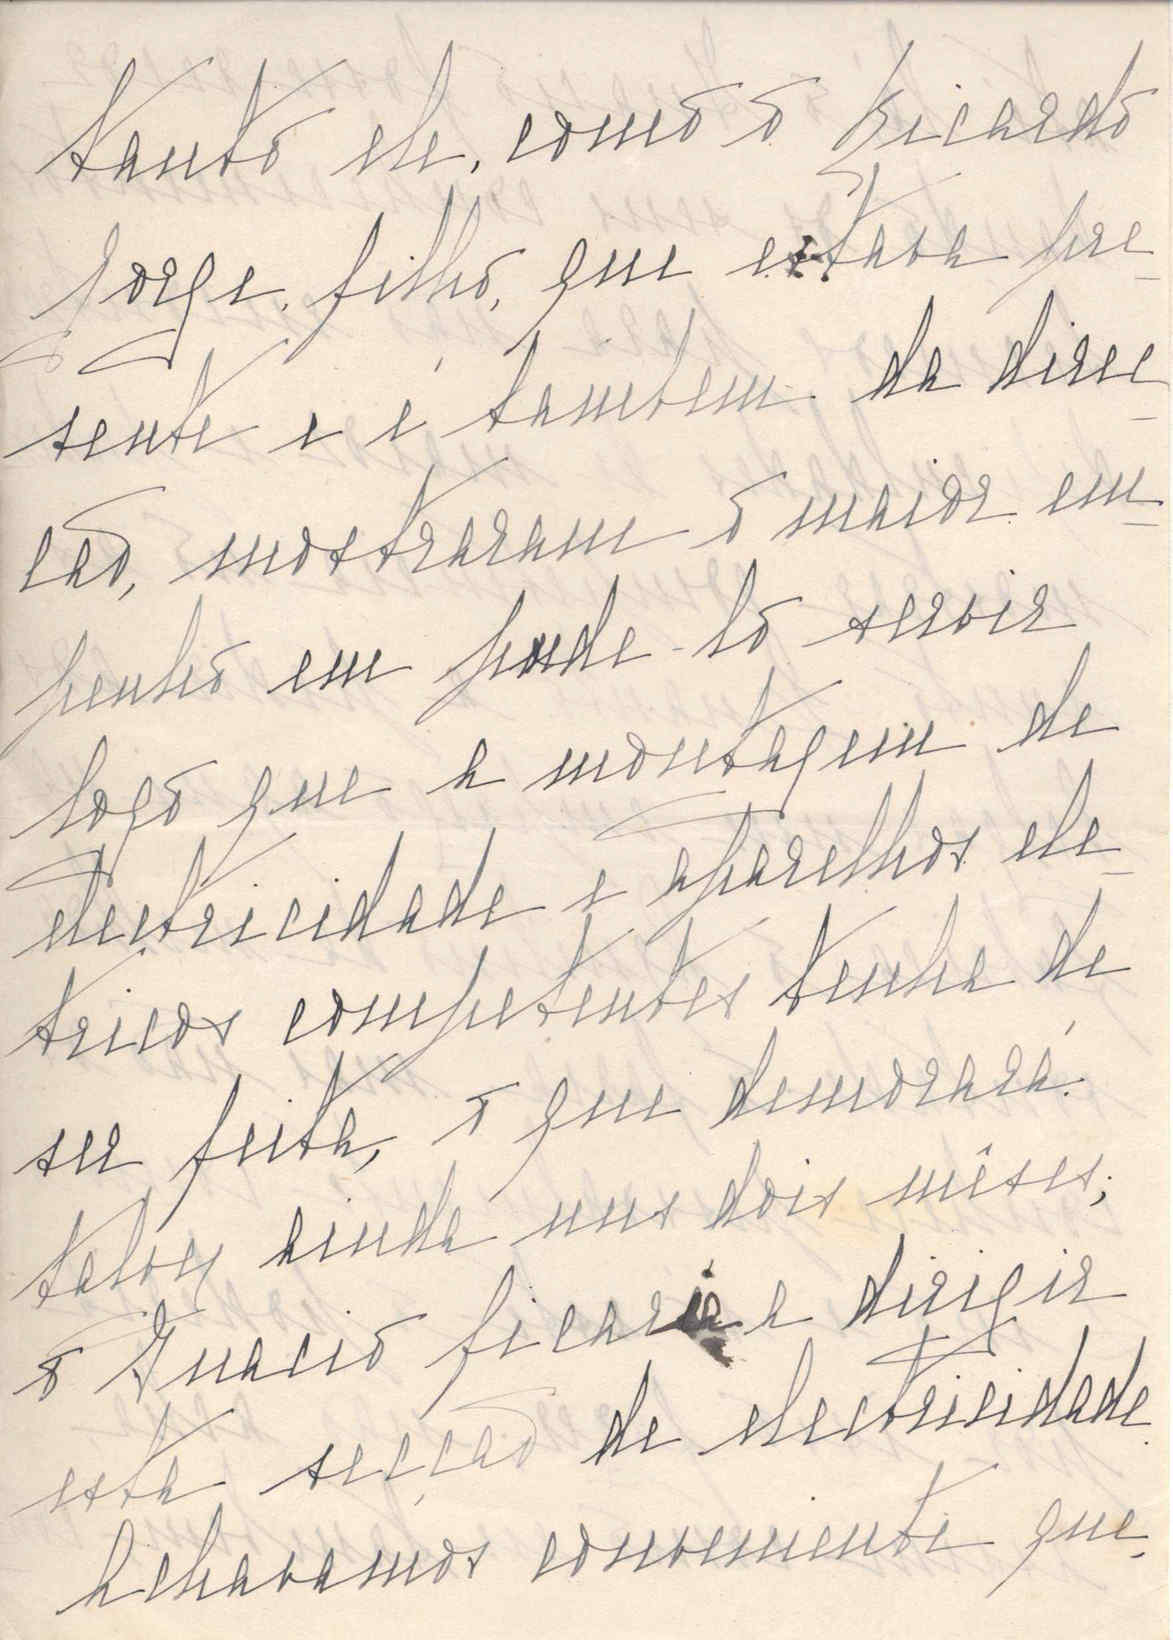 tanto ele, como o Ricardo
Jorge, filho, que estava pre-
sente e é tambem da direc-
ção, mostraram o maior em-
penho em pode-lo servir
logo que a montagem de
electricidade e aparelhos ele-
tricos competentes tenha de
ser feita, o que demorará
talvez ainda uns dois mêses;
o Inacio ficaria a dirigir
esta secção de electricidade.
Achavamos conveniente que,